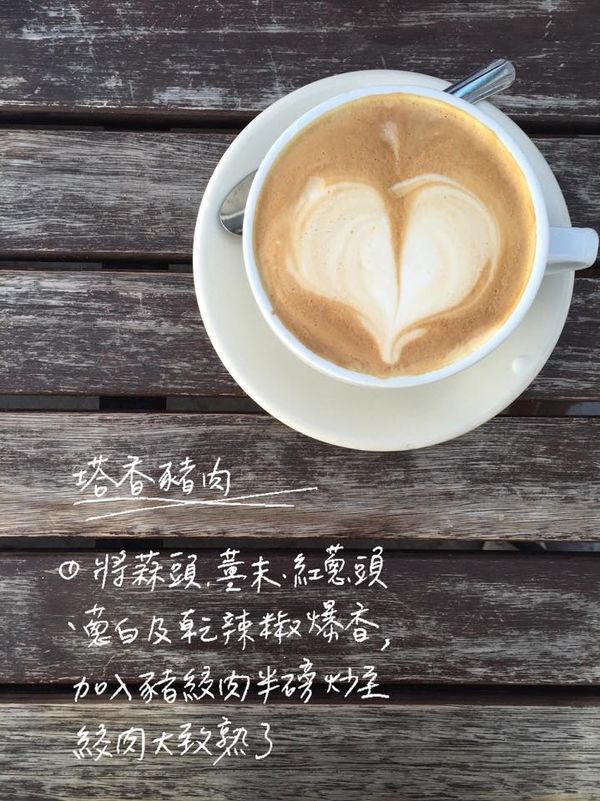 塔香豬肉
① 將蒜頭、薑末、紅蔥頭
、蔥白及乾辣椒爆香,
加入豬絞肉半磅炒至
絞肉大致熟了